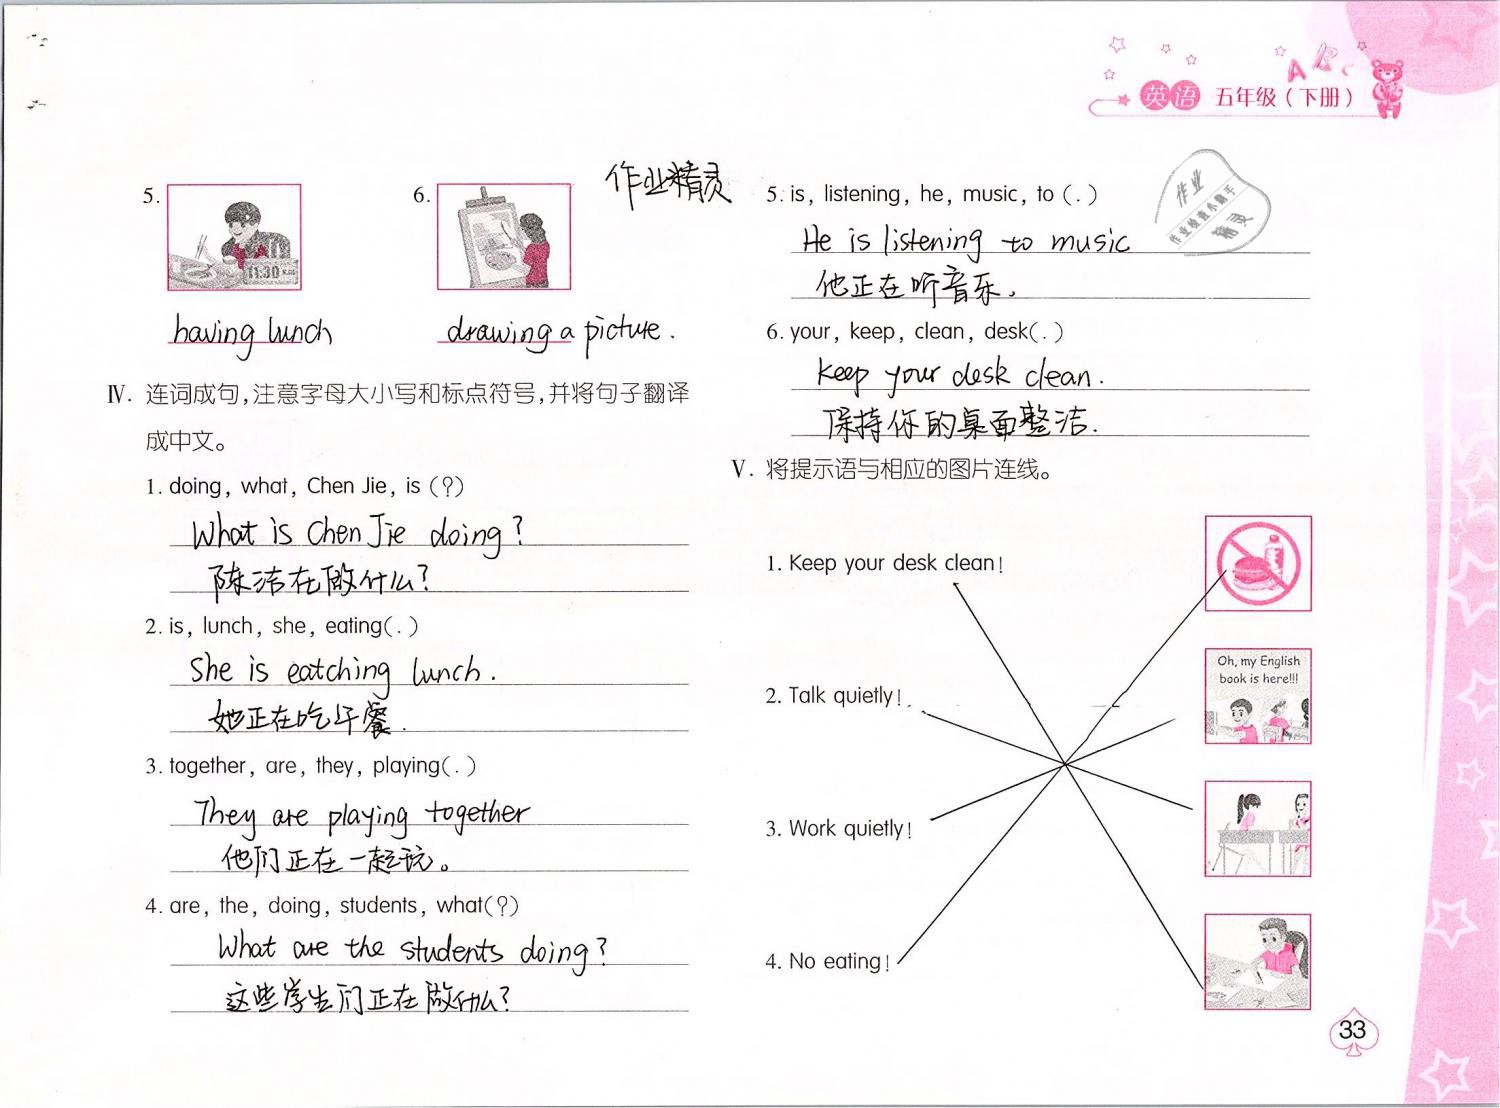 英语 五年级（下册）
5.
11:30
having lunch
6.
drawing a picture.
作业精灵
Ⅳ. 连词成句，注意字母大小写和标点符号，并将句子翻译
成中文。
1. doing, what, Chen Jie, is (?)
What is Chen Jie doing?
陈洁在做什么?
2. is, lunch, she, eating(.)
She is eatching lunch.
她正在吃午餐.
3. together, are, they, playing(.)
They are playing together
他们正在一起玩。
4. are, the, doing, students, what(?)
What are the students doing?
这些学生们正在做什么?
5. is, listening, he, music, to (.)
He is listening to music
他正在听音乐.
作业
作业检查小助手
精灵
6. your, keep, clean, desk(.)
keep your desk clean.
保持你的桌面整洁.
Ⅴ. 将提示语与相应的图片连线。
1. Keep your desk clean!
2. Talk quietly!
Oh, my English
book is here!!!
3. Work quietly!
4. No eating!
33